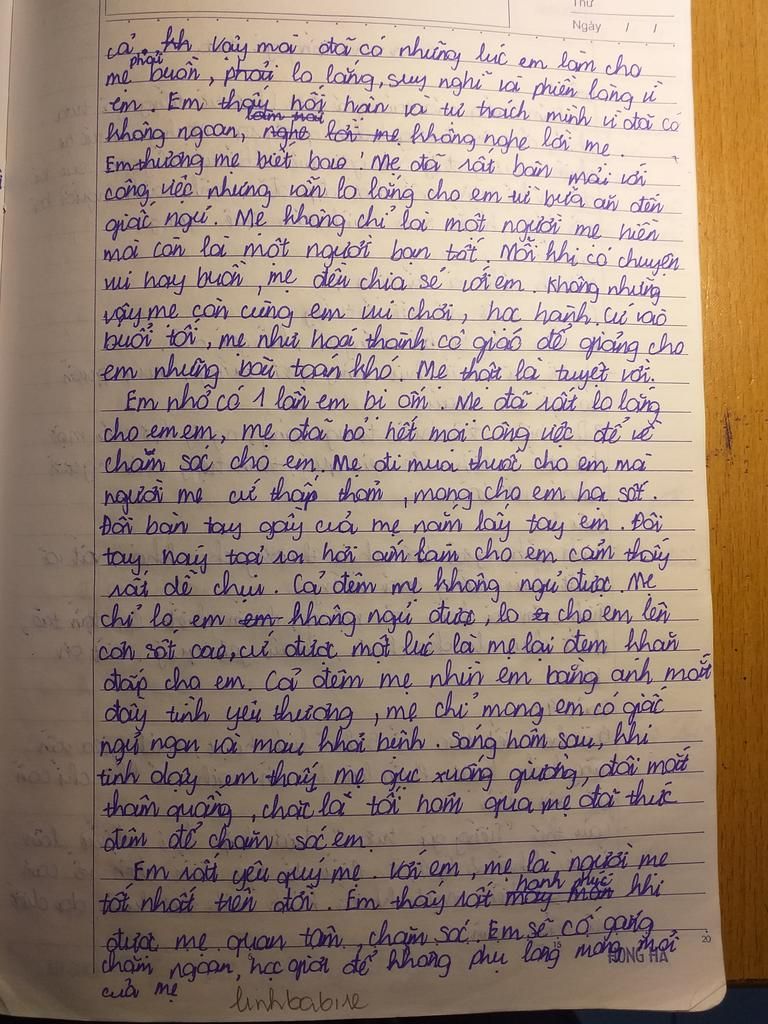 Thứ
Ngày / /
cả. Kh vậy mà đã có những lúc em làm cho
mẹ phải buồn, phải lo lắng, suy nghĩ và phiền lòng vì
em. Em thấy hối hận và tự trách mình vì đã có
không ngoan, nghe lời mẹ không nghe lời mẹ.
Em thương mẹ biết bao! Mẹ đã rất bận mải với
công việc nhưng vẫn lo lắng cho em từ bữa ăn đến
giấc ngủ. Mẹ không chỉ là một người mẹ hiền
mà còn là một người bạn tốt. Mỗi khi có chuyện
vui hay buồn, mẹ đều chia sẻ với em. Không những
vậy mẹ còn cùng em vui chơi, học hành. Cứ vào
buổi tối, mẹ như hoá thành cô giáo để giảng cho
em những bài toán khó. Mẹ thật là tuyệt vời.
Em nhớ có 1 lần em bị ốm. Mẹ đã rất lo lắng
cho emem, mẹ đã bỏ hết mọi công việc để về
chăm sóc cho em. Mẹ đi mua thuốc cho em mà
người mẹ cứ thấp thỏm, mong cho em hạ sốt.
Đôi bàn tay gầy của mẹ nắm lấy tay em. Đôi
tay này toả ra hơi ấm làm cho em cảm thấy
rất dễ chịu. Cả đêm mẹ không ngủ được. Mẹ
chỉ lo em em không ngủ được, lo cho em lên
cơn sốt cao, cứ được một lúc là mẹ lại đem khăn
đắp cho em. Cả đêm mẹ nhìn em bằng ánh mắt
đầy tình yêu thương, mẹ chỉ mong em có giấc
ngủ ngon và mau khỏi bệnh. Sáng hôm sau, khi
tỉnh dậy em thấy mẹ gục xuống giường, đôi mắt
thâm quầng, chắc là tối hôm qua mẹ đã thức
đêm để chăm sóc em.
Em rất yêu quý mẹ. Với em, mẹ là người mẹ
tốt nhất trên đời. Em thấy rất may mắn hạnh phúc khi
được mẹ quan tâm, chăm sóc. Em sẽ cố gắng
chăm ngoan, học giỏi để không phụ lòng mong mỏi
của mẹ
linhbabie
HONG HA
20